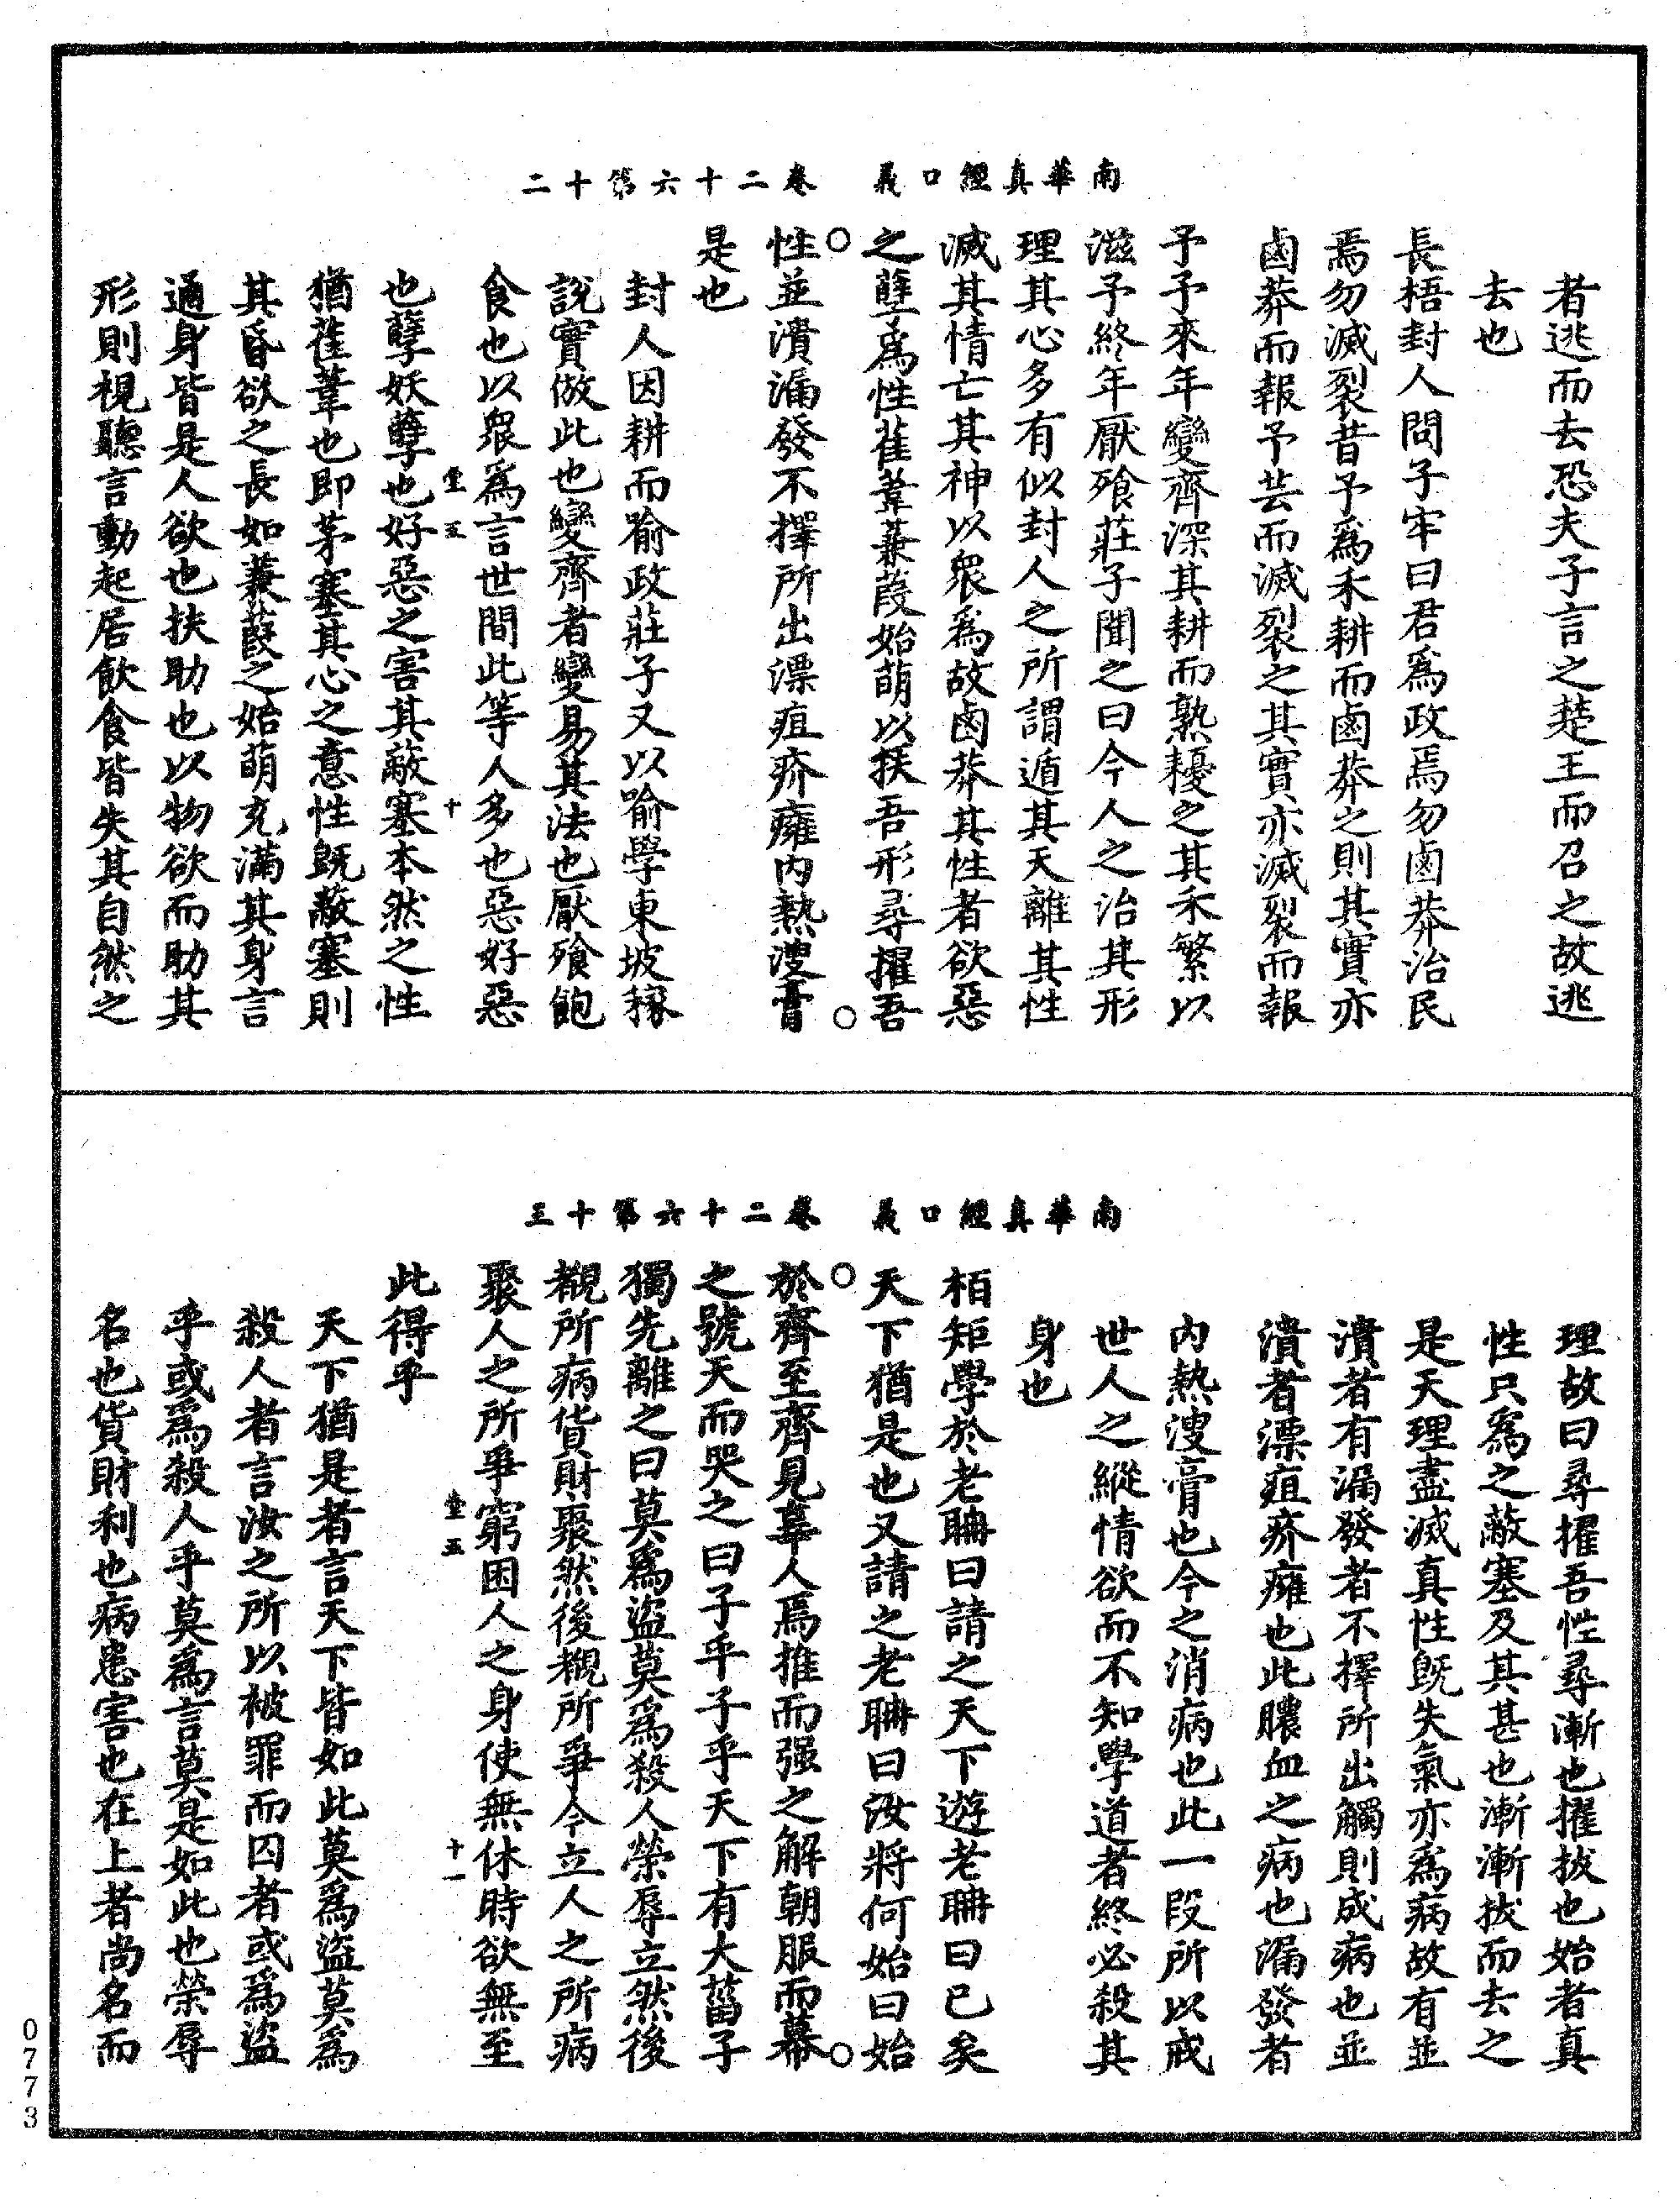 南華真經口義　卷二十六第十二
者逃而去恐夫子言之楚王而召之故逃
去也
長梧封人問子牢曰君爲政焉勿鹵莽治民
焉勿滅裂昔予爲禾耕而鹵莽之則其實亦
鹵莽而報予芸而滅裂之其實亦滅裂而報
予予來年變齊深其耕而熟耰之其禾繁以
滋予終年厭飱莊子聞之曰今人之治其形
理其心多有似封人之所謂遁其天離其性
滅其情亡其神以衆爲故鹵莽其性者欲惡
之孽爲性萑葦蒹葭始萌以扶吾形尋擢吾
性並潰漏發不擇所出漂疽疥癰內熱溲膏
是也
封人因耕而喻政莊子又以喻學東坡稼
說實倣此也變齊者變易其法也厭飱飽
食也以衆爲言世間此等人多也惡好惡
也孽妖孽也好惡之害其蔽塞本然之性
堂五　十
猶萑葦也即茅塞其心之意性旣蔽塞則
其昏欲之長如蒹葭之始萌充滿其身言
通身皆是人欲也扶助也以物欲而助其
形則視聽言動起居飲食皆失其自然之
南華真經口義　卷二十六第十三
理故曰尋擢吾性尋漸也擢拔也始者真
性只爲之蔽塞及其甚也漸漸拔而去之
是天理盡滅真性旣失氣亦爲病故有並
潰者有漏發者不擇所出觸則成病也並
潰者漂疽疥癰也此膿血之病也漏發者
內熱溲膏也今之消病也此一段所以戒
世人之縱情欲而不知學道者終必殺其
身也
柏矩學於老聃曰請之天下遊老聃曰已矣
天下猶是也又請之老聃曰汝將何始曰始
於齊至齊見辜人焉推而强之解朝服而幕
之號天而哭之曰子乎子乎天下有大菑子
獨先離之曰莫爲盜莫爲殺人榮辱立然後
覩所病貨財聚然後覩所爭今立人之所病
聚人之所爭窮困人之身使無休時欲無至
堂五　十一
此得乎
天下猶是者言天下皆如此莫爲盜莫爲
殺人者言汝之所以被罪而囚者或爲盜
乎或爲殺人乎莫爲言莫是如此也榮辱
名也貨財利也病患害也在上者尚名而
0773